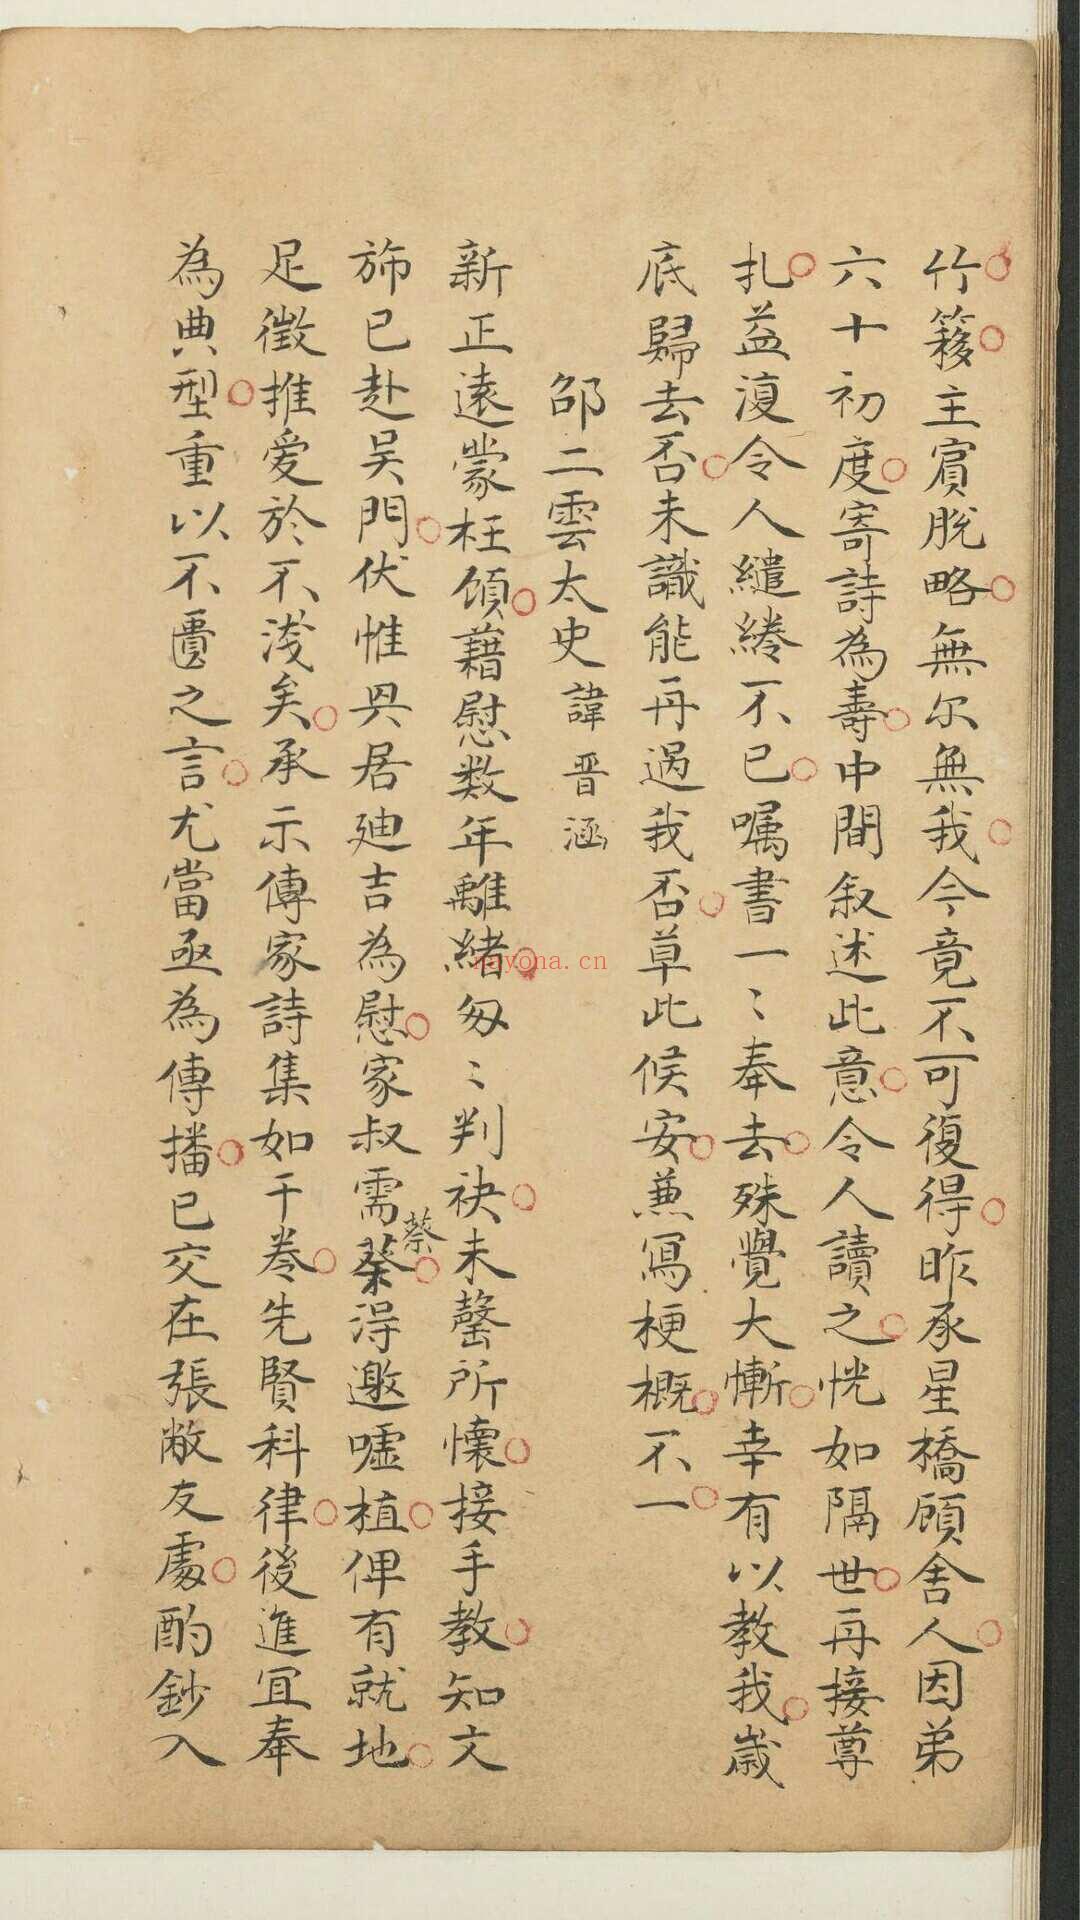 竹簃主賓脫略無尔無我今竟不可復得昨承星橋顧舍人因弟
六十初度寄詩為壽中間叙述此意令人讀之恍如隔世再接尊
扎益復令人繾綣不已囑書一〻奉去殊覺大慚幸有以教我歲
底歸去否未識能再過我否草此候安蕙寫梗概不一
邵二雲太史諱晋涵
新正遠蒙枉頎藉慰数年離緒匆〻判袂未罄所懷接手教知文
斾已赴吴門伏惟興居廸吉為慰家叔需蔡淂邀噓植俾有就地
蔡
足徵推爱於不淺矣承示傳家詩集如干卷先賢科律後進宜奉
為典型重以不匱之言尤當亟為傳播已交在張敝友處酌鈔入
nayona.cn